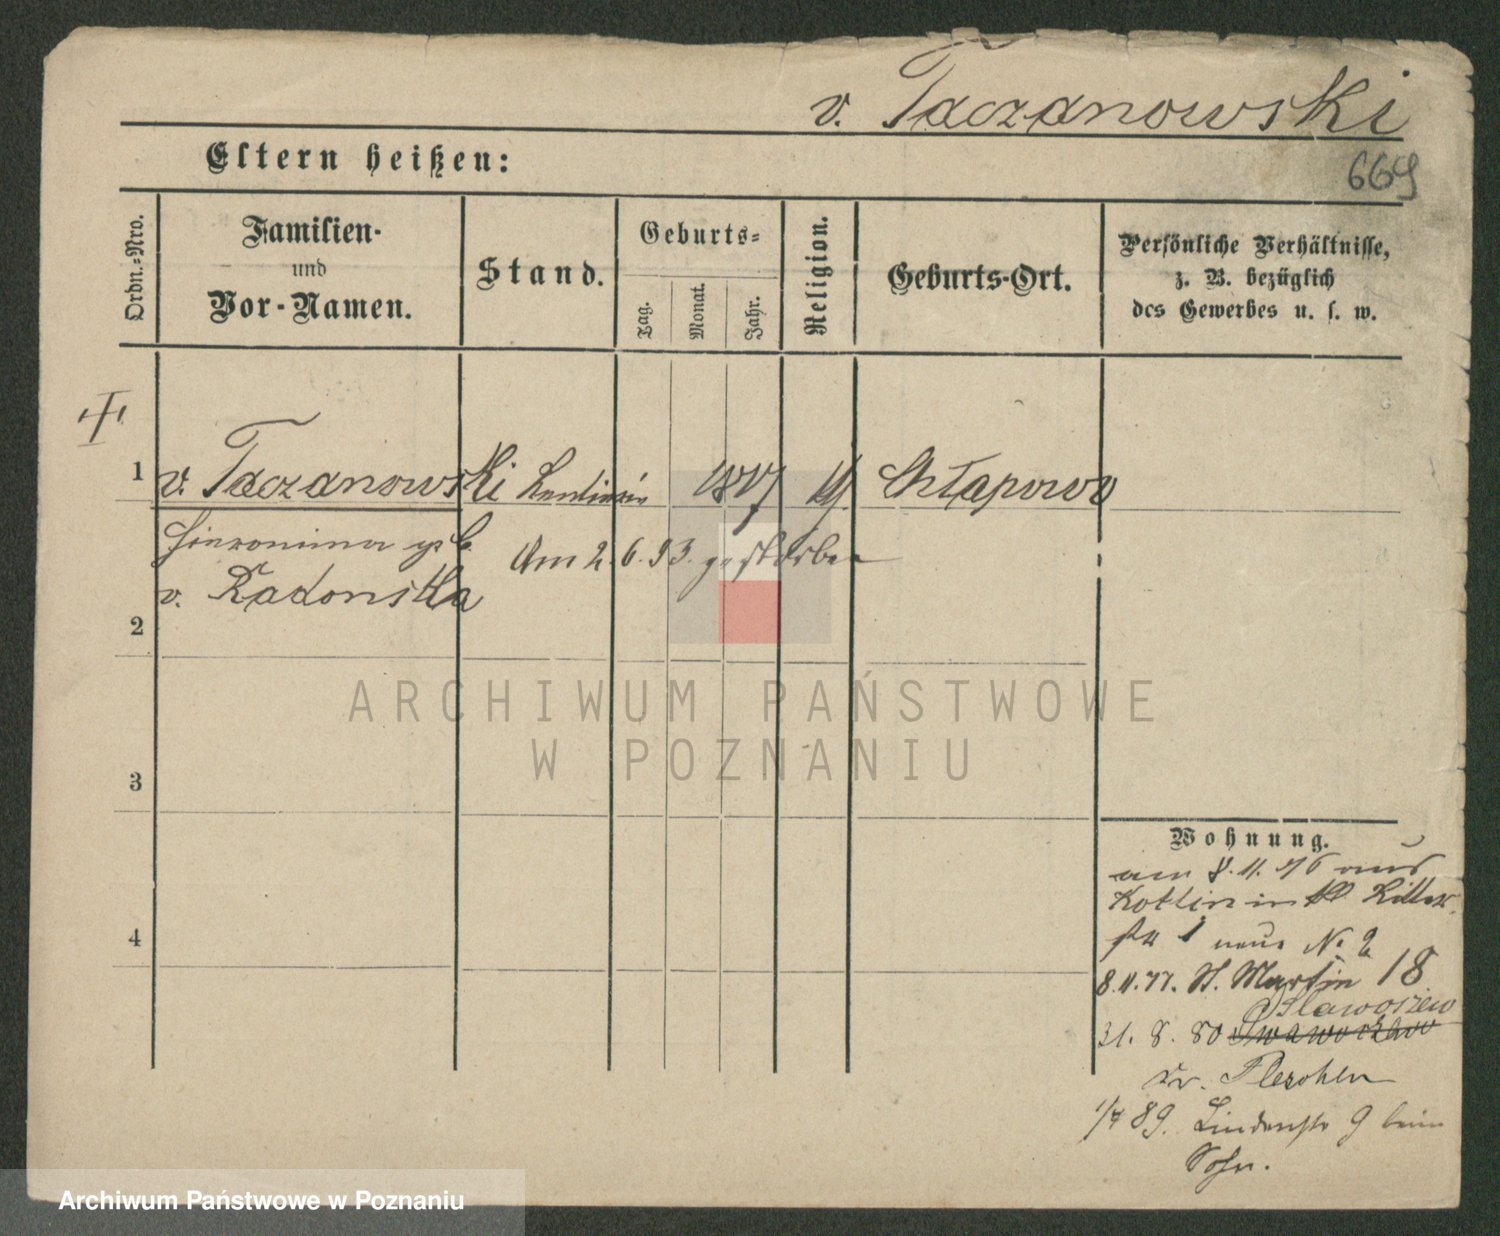 v. Taczanowski
Eltern heißen:
669
Ordn.-Nro.
Familien-
und
Vor-Namen.
Stand.
Geburts-
Tag.
Monat.
Jahr.
Religion.
Geburts-Ort.
Persönliche Verhältnisse,
z. B. bezüglich
des Gewerbes u. s. w.
1
v. Taczanowski
1817
Chłapowo
Hieronima geb.
v. Radonska
Am 2. 6. 93. gestorben
2
3
4
ARCHIWUM PAŃSTWOWE
W POZNANIU
Wohnung.
am 8. 11. 76 aus
Kotlin in kl Ritter
str 1 neue No 2
8. 11. 77. St. Martin 18
Slawoszew
31. 8. 80
Kr. Pleschen
1/7 89. Lindenstr 9 beim
Sohn.
Archiwum Państwowe w Poznaniu